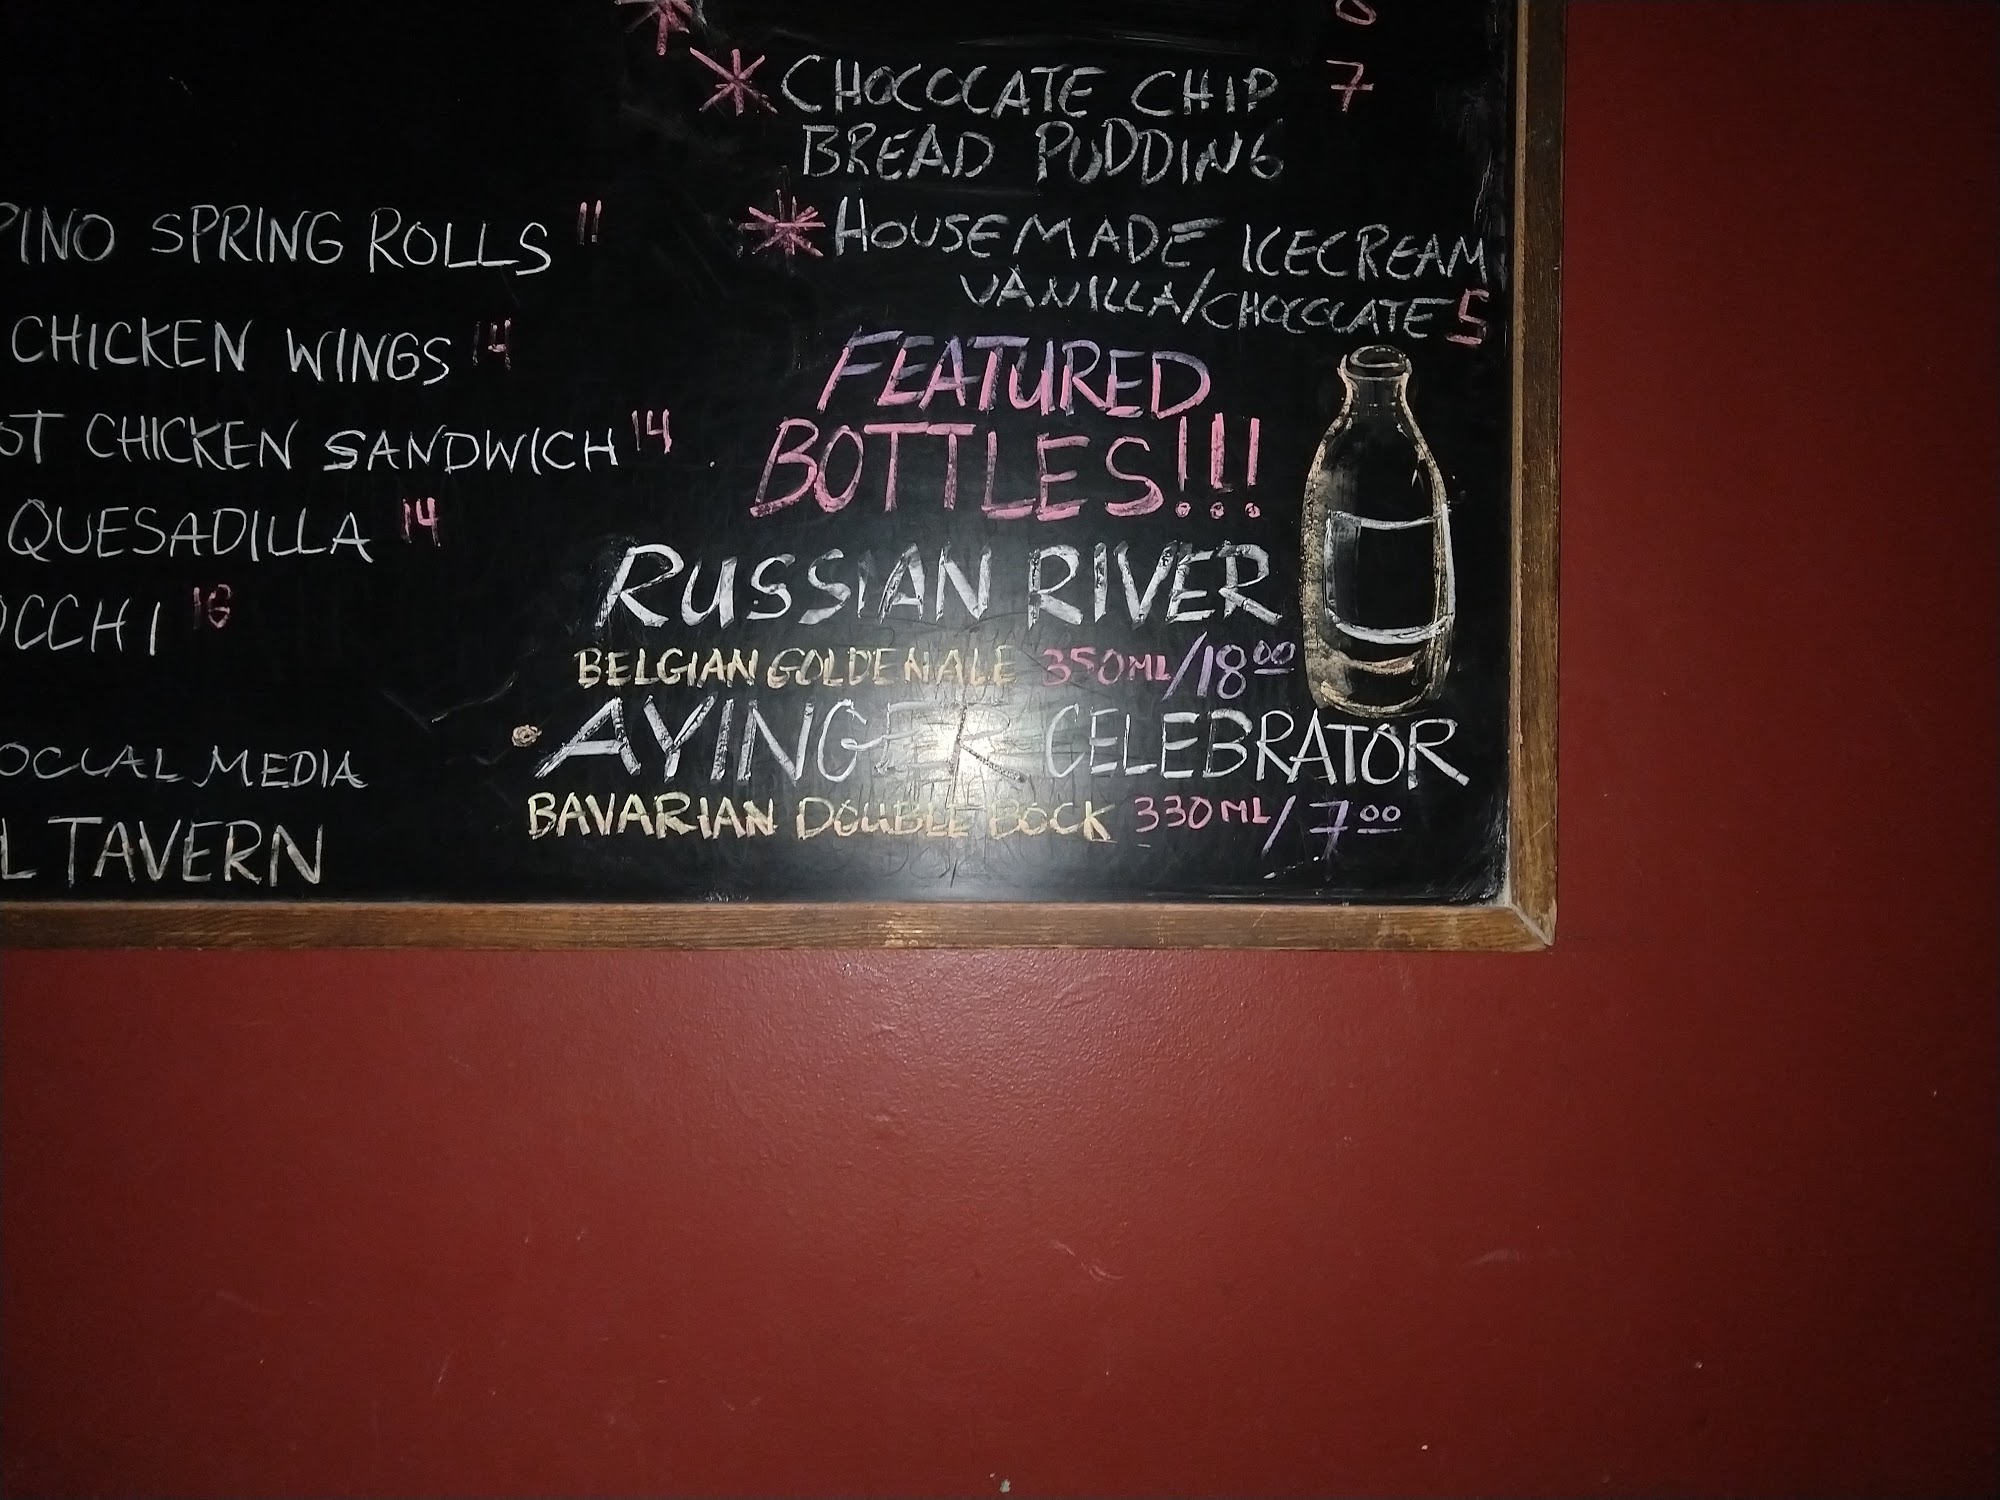 PINO SPRING ROLLS 11
CHICKEN WINGS 14
ST CHICKEN SANDWICH 14
QUESADILLA 14
OCCHI 16
SOCIAL MEDIA
L TAVERN
CHOCOLATE CHIP 7
BREAD PUDDING
HOUSEMADE ICECREAM
VANILLA/CHOCOLATE 5
FEATURED
BOTTLES!!!
RUSSIAN RIVER
BELGIAN GOLDEN ALE 350ML/18.00
AYINGER CELEBRATOR
BAVARIAN DOUBLE BOCK 330ML/7.00